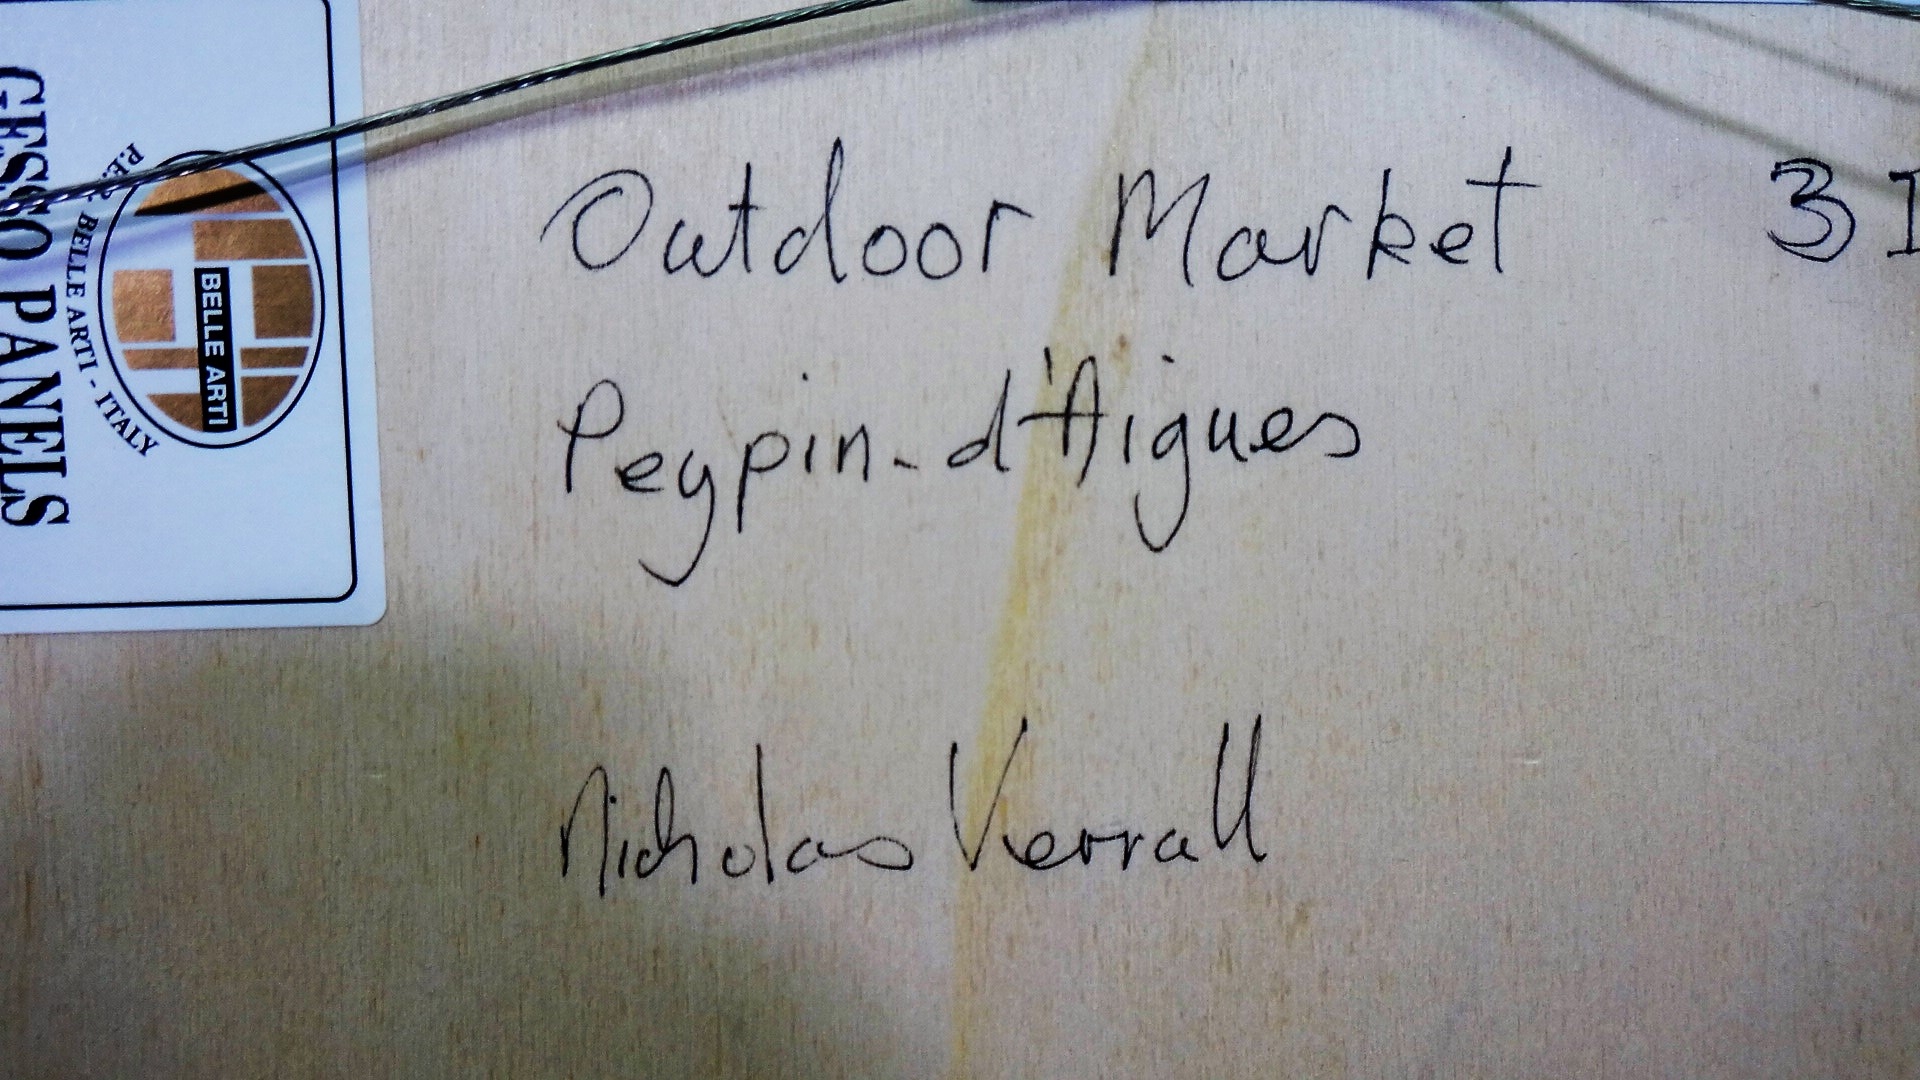 Outdoor Market 3
Peypin-d'Aigues
Nicholas Verrall
GESSO PANELS
BELLE ARTI - ITALY
BELLE ARTI